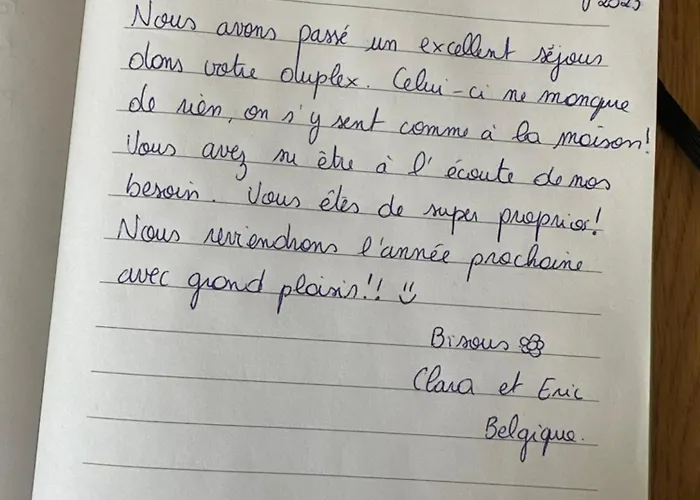 2023
Nous avons passé un excellent séjour
dans votre duplex. Celui-ci ne manque
de rien, on s'y sent comme à la maison!
Vous avez su être à l'écoute de nos
besoin. Vous êtes de super proprios!
Nous reviendrons l'année prochaine
avec grand plaisir!! ☺
Bisous
Clara et Eric
Belgique.